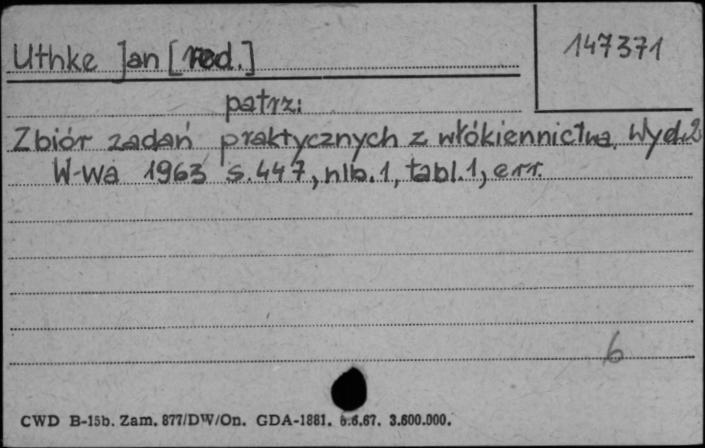 Uthke Jan [red.]
147371
patrz:
Zbiór zadań praktycznych z włókiennictwa. Wyd. 2
W-wa 1963 s. 447, nlb. 1, tabl. 1, err.
6
CWD B-15b. Zam. 877/DW/On. GDA-1881. 6.6.67. 3.600.000.